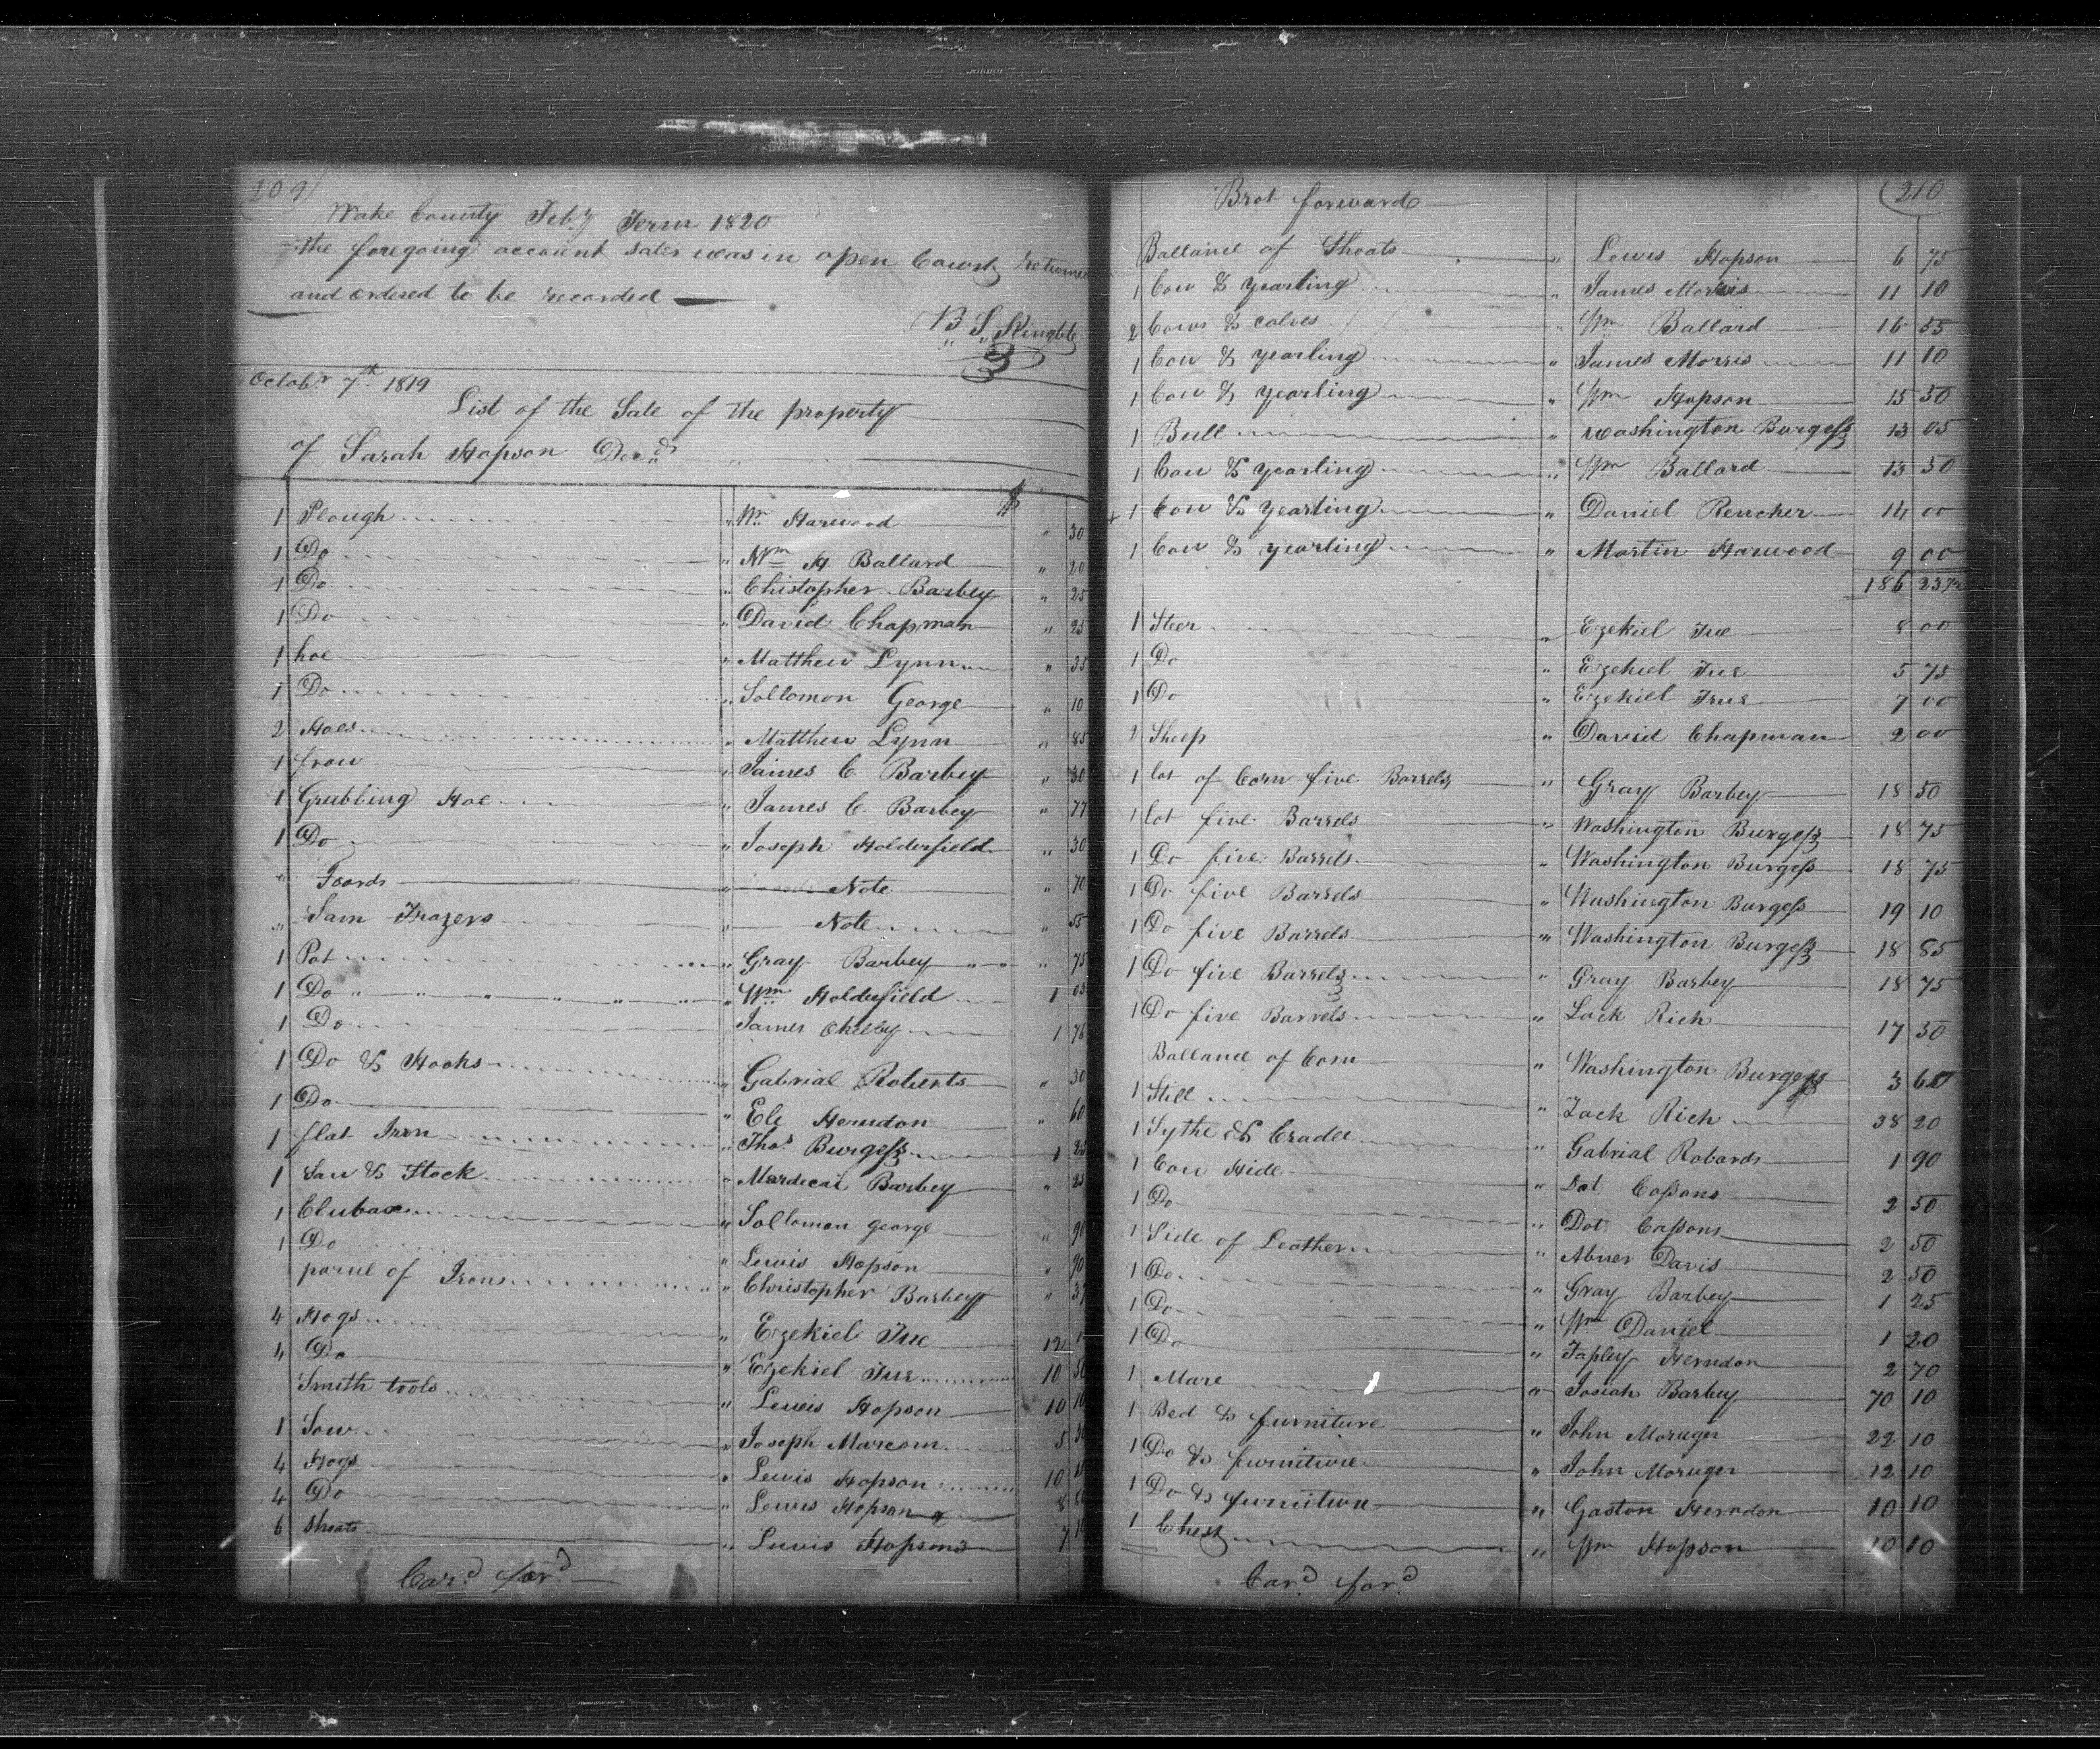 209
Wake County Feby Term 1820
The foregoing account sales was in open Court returned
and ordered to be recorded
B. S. King Clk
Octobr 7th 1819
List of the Sale of the property
of Sarah Hopson Decd
$
1 Plough " Wm Harwood " 30
1 Do " Wm H Ballard " 20
1 Do " Chistopher Barbey " 25
1 Do " David Chapman " 25
1 hoe " Matthew Lynn " 35
1 Do " Sollomon George " 10
2 Hoes " Matthew Lynn " 85
1 frow " James C. Barbey " 30
1 Grubbing Hoe " James C. Barbey " 77
1 Do " Joseph Holderfield " 30
" Foards " Note " 70
" Sam Frazers " Note " 55
1 Pot " Gray Barbey " 75
1 Do " Wm Holderfield 1 05
1 Do James 1 76
1 Do & Hooks " Gabrial Roberts " 30
1 Do " Eli Herndon " 60
1 flat Iron " Thos Burgess 1 25
1 Saw & Stock " Mardecai Barbey " 25
1 Clubaxe " Sollomon george " 90
1 Do " Lewis Hopson " 90
parcel of Irons " Christopher Barbey " 37
4 Hogs " Ezekiel True 12
4 Do " Ezekiel True 10 50
Smith tools " Lewis Hopson 10 10
1 Sow " Joseph Marcom 5
4 Hogs " Lewis Hopson 10
4 Do " Lewis Hopson 8
6 shoats " Lewis Hopson 7
Card ford
210
Brot forward
Balland of Shoats " Lewis Hopson 6 75
1 Cow & yearling " James Morris 11 10
2 Cows & calves " Wm Ballard 16 55
1 Cow & yearling " James Morris 11 10
1 Cow & yearling " Wm Hopson 15 50
1 Bull " Washington Burgess 13 05
1 Cow & yearling " Wm Ballard 13 50
+ 1 Cow & yearling " Daniel Rencher 14 00
1 Cow & yearling " Martin Harwood 9 00
186 23 1/2
1 Steer " Ezekiel True 8 00
1 Do " Ezekiel True 5 75
1 Do " Ezekiel True 7 00
2 Sheep " David Chapman 2 00
1 lot of Corn five Barrels " Gray Barbey 18 50
1 lot five Barrels " Washington Burgess 18 75
1 Do five Barrels " Washington Burgess 18 75
1 Do five Barrels " Washington Burgess 19 10
1 Do five Barrels " Washington Burgess 18 85
1 Do five Barrels " Gray Barbey 18 75
1 Do five Barrels " Zack Rich 17 50
Balland of Corn " Washington Burgess 3 60
1 Still " Zack Rich 38 20
1 Sythe & Cradle " Gabrial Robards 1 90
1 Cow Hide " Dot Cassons 2 50
1 Do " Dot Cassons 2 50
1 Side of Leather " Abner Davis 2 50
1 Do " Gray Barbey 1 25
1 Do " Wm Daniel 1 20
1 Do " Tapley Herndon 2 70
1 Mare " Josiah Barbey 70 10
1 Bed & furniture " John Moruger 22 10
1 Do & furniture " John Moruger 12 10
1 Do & furniture " Gaston Herndon 10 10
1 Chest " Wm Hopson 10 10
Card ford